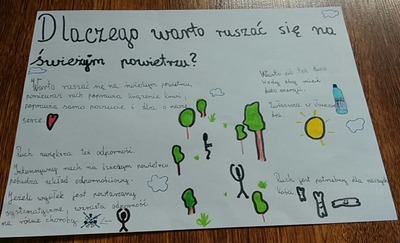 Dlaczego warto ruszać się na
świeżym powietrzu?
Warto ruszać się na świeżym powietrzu,
ponieważ ruch poprawia krążenie krwi,
poprawia samo poczucie i dba o nasze
serce
Warto pić też dużo
wody aby mieć
dużo energii.
Ruch zwiększa też odporność.
Intensywny ruch na świeżym powietrzu
pobudza układ odpornościowy.
Jeżeli wysiłek jest powtarzany
systematycznie, wzrasta odporność
na różne choroby.
Ruch jest potrzebny dla naszych
kości